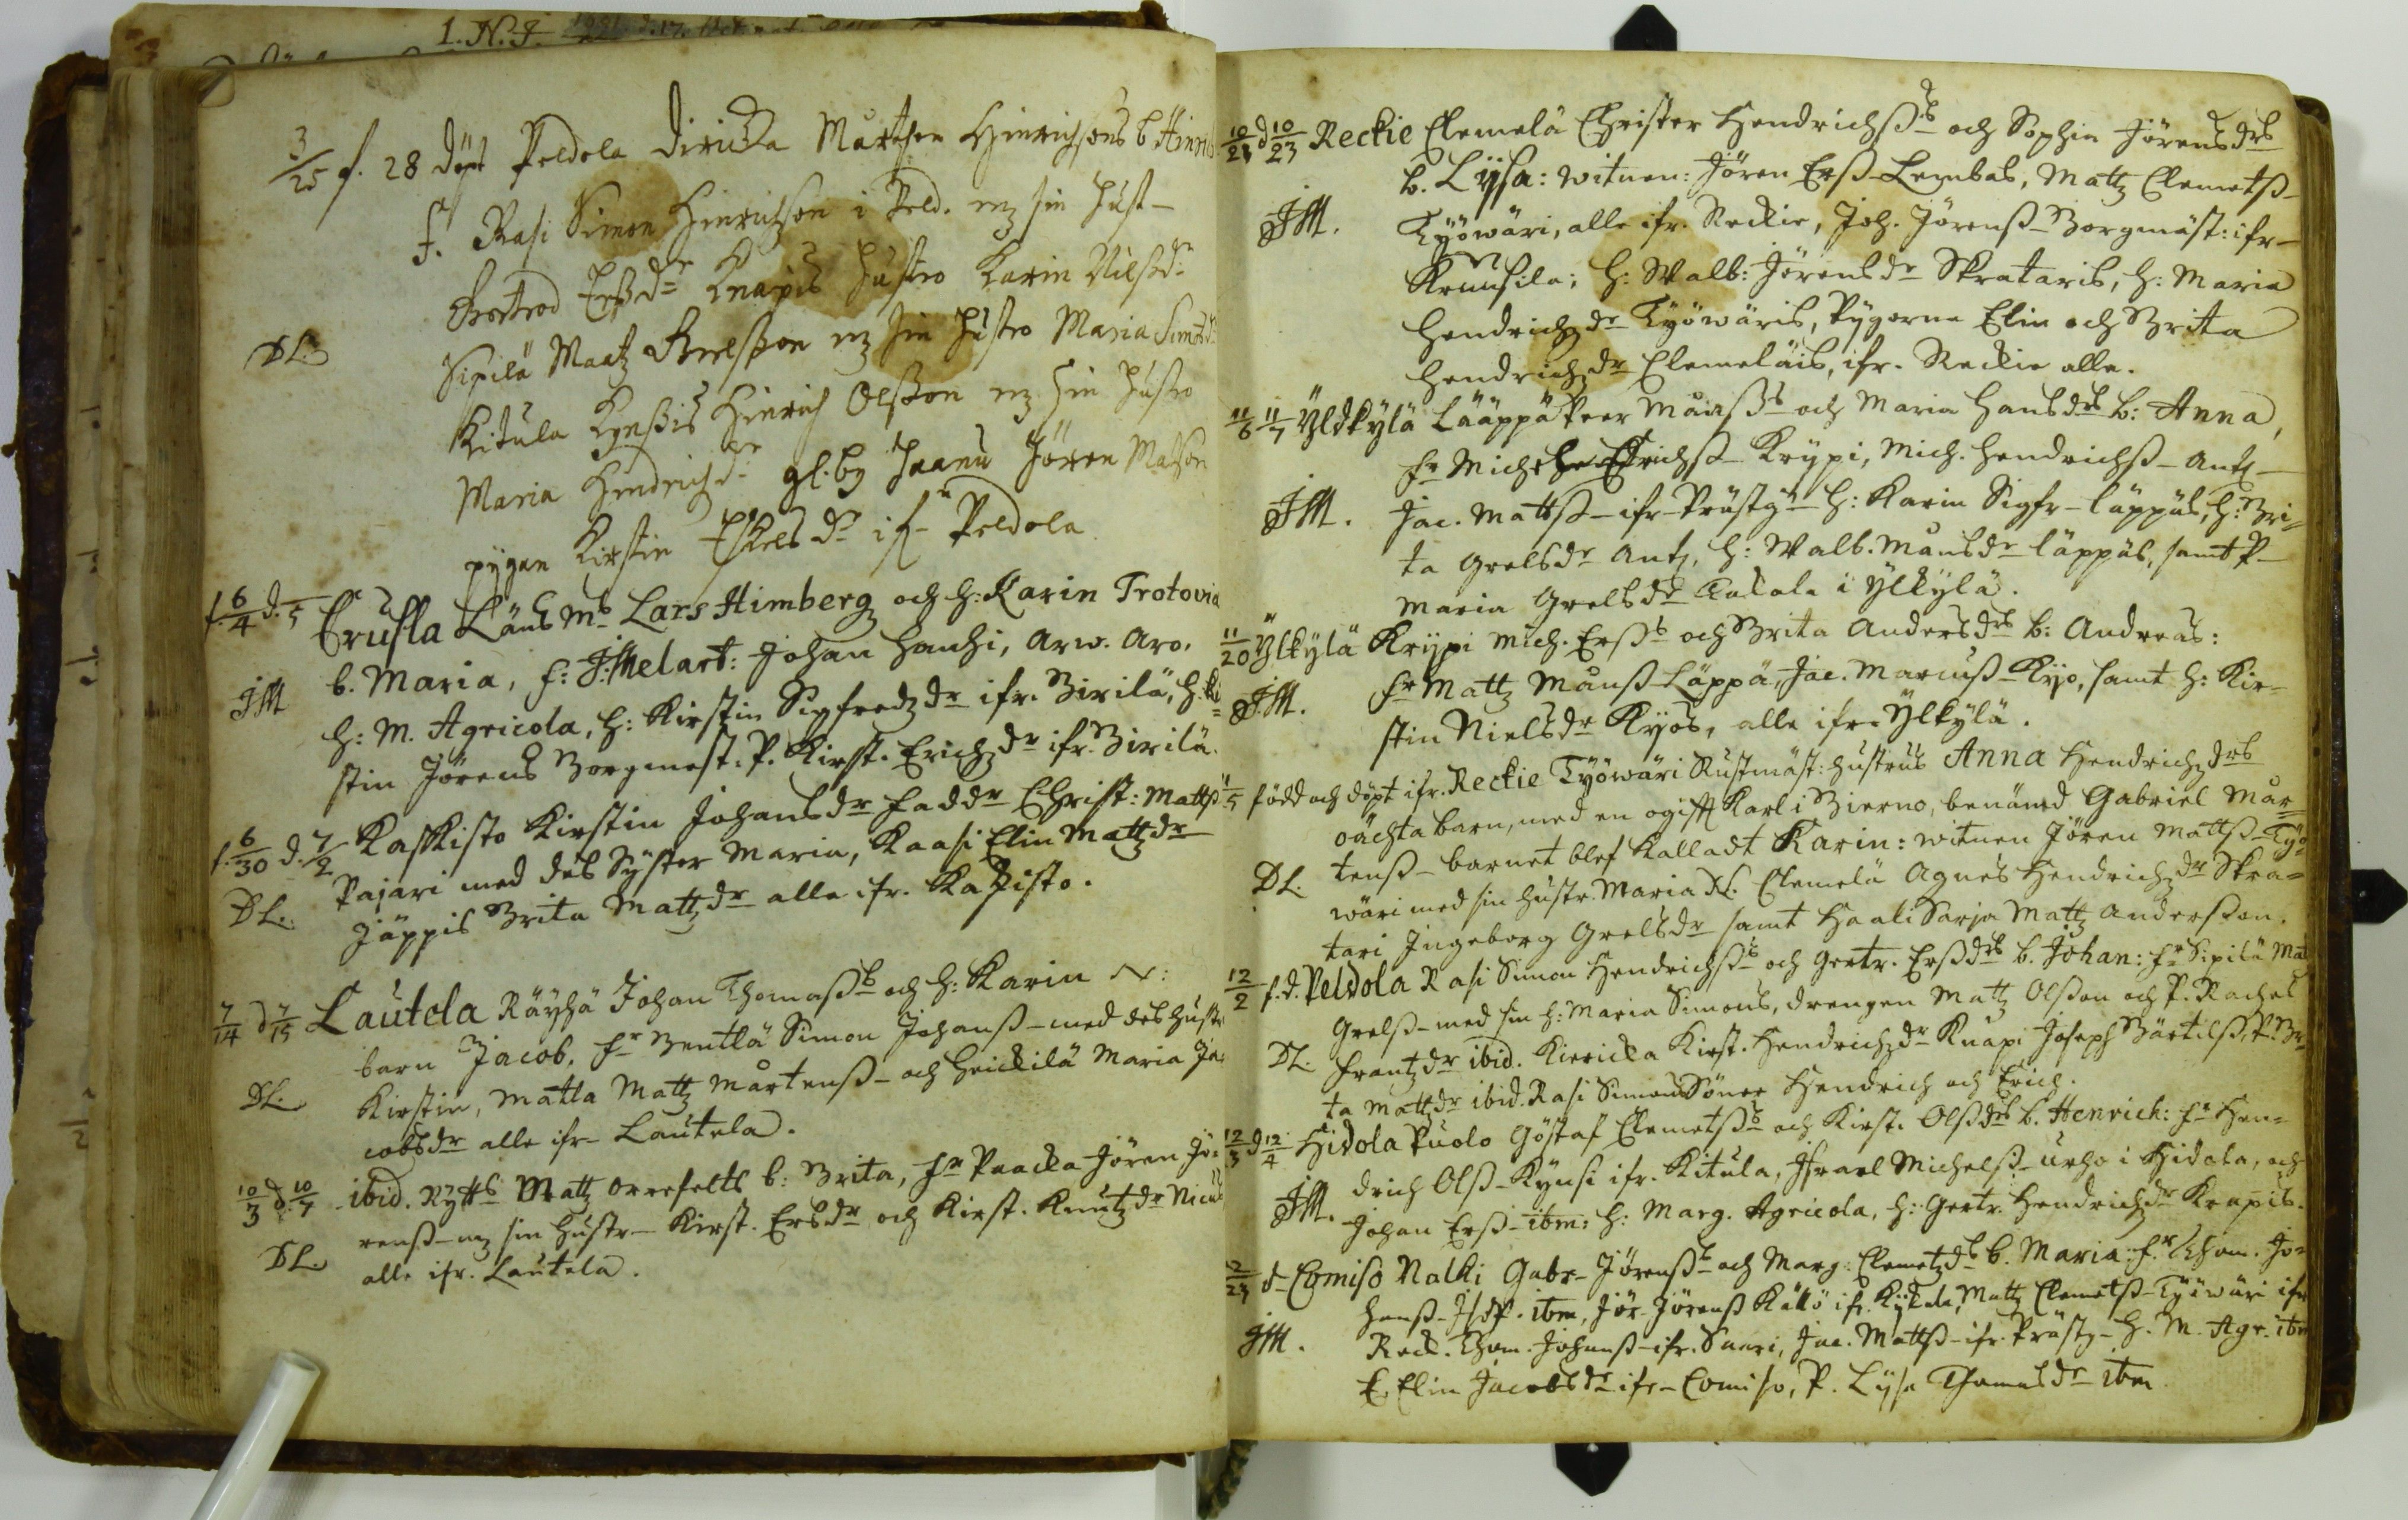 1. N. J.
3/25 f. 28 döpt Peldola Diricka Mårthen Hinrichsons b. Hinric
f. Rasi Simon Hinrichson i Peld. mz sin hust-
Erßdr Knapis hustro Karin Nilsdr
DL. Sipilä Matz Grelsson mz sin hustro Maria Simo dr
Kitula Kynsis Hinrich Olsson mz sin hustro
Maria Hendrichdr gl. by Jaanu Jören Matson
pygan Kirstin Eskelsdr if- Peldola
f. 6/4 d. 5 Crusla Länsms Lars Himberg och h: Karin Trotovia
b. Maria, f: J. Melart: Johan Hanhi, Arw. Aro.
JM h: M. Agricola, h: Kirstin Sigfredzdr ifr. Birilä, h. Ki
stin Jörens Borgmest. P. Kirst. Erichzdr ifr. Birilä.
f. 6/30 d. 7/2 Kaskisto Kirstin Johansdr faddr Christ: Mattß
Pajari med dess Syster Maria, Kaasi Elin Mattzdr
DL. Jäppis Brita Mattzdr alla ifr. Kaskisto.
7/14 d 7/15 Lautela Räyhä Johan Thomaßs och h: Karin N:
barn Jacob. fr Bentlä Simon Johanß- med dess hustr
DL. Kirstin, Matla Mattz Mårtenß- och Heickilä Maria Ja-
cobsdr alle ifr- Lautela.
10/3 d. 10/7 ibid. Rytts Mattz Orrefelts b: Brita, fr Paacka Jören Jö-
renß- mz sin hustr- Kirst. Ersdr och Kirst. Knutzdr
DL. alle ifr. Lautela.
10/21 d 10/23 Reckie Elemelä Christer Hendrichßs och Sophia Jörensdrs
b. Lijsa: witnen: Jören Erß- Lembas, Mattz Clemetß-
JM. Työwäri, alle ifr. Reckie, Joh. Jörenß- Borgmäst: ifr-
Kruusila; h: Walb: Jörensdr Skrataris, h: Maria
Hendrichzdr Työwäris, Pygorna Elin och Brita
Hendrichzdr Elemeläis, ifr. Reckie alle.
11/6 11/7 Yldkylä Lääppä Peer Månßs och Maria Hansdrs b: Anna,
fr Mich Erichß- Krypi, Mich. Hendrichß- Antj-
JM. Jac. Mattß- ifr- Prästgn h: Karin Sigfr- Läppäs, h: Bri-
ta Grelsdr Antj, h: Walb. Månsdr Läppäs, samt P-
Maria Grelsdr Takala i Ylkylä.
11/20 Ylkylä Krypi Mich. Erßs och Brita Andersdrs b: Andreas:
JM. fr Mattz Månß Läppä, Jac. Marcuß- Kyö, samt h: Kir-
stin Nielsdr Kyös, alle ifr. Ylkylä.
11/5 född och döpt ifr. Reckie Työwäri Rustmäst: hustrus Anna Hendrichzdrs
oächta barn, med en ogift Karl i Bierno, benämd Gabriel Mår-
tenß- barnet blef Kalladt Karin: witnen Jören Mattß- Työ-
DL. wäri med sin hustr. Maria N. Elemelä Agnes Hendrichzdr Skra-
tari Ingeborg Grelsdr samt Haali Sarja Mattz Andersson.
12/2 f. d. Peldola Rasi Simon Hendrichßs och Gertr. Erßdrs b. Johan: fr Sipilä Mat
Grelß- med sin h: Maria Simons, drengen Mattz Olsson och P. Rachel
DL. Frantzdr ibid. Kiericka Kirst. Hendrichzdr Knapi Joseph Bärtilß, P. Br-
ta Mattzdr ibid. Rasi Simons Söner Hendrich och Erich.
12/3 d 12/4 Hidola Puolo Göstaf Clemetßs och Kirst. Olßdrs b. Henrich: fr Hen-
JM. drich Olß- Kynsi ifr. Kitula, Israel Michelß- Urho i Hidola, och
Johan Erß- ibm: h: Marg. Agricola, h: Gertr. Hendrichzdr Knapis.
12/24 d- Comiso Nalki Gabr- Jörenßs och Marg: Clemetzds b. Maria: fr Thom. Jo-
hanß- ibm, Jör- Jörenß Källö ifr. Kykala, Mattz Clemetß- Työwäri ifr
JM. Reck. Thom. Johanß- ifr. Saari, Jac. Mattß- ifr. Prästg- h. M. Agr. ibm
E. Elin Jacobsdr ifr- Comiso, P. Lysa Thomasdr ibm